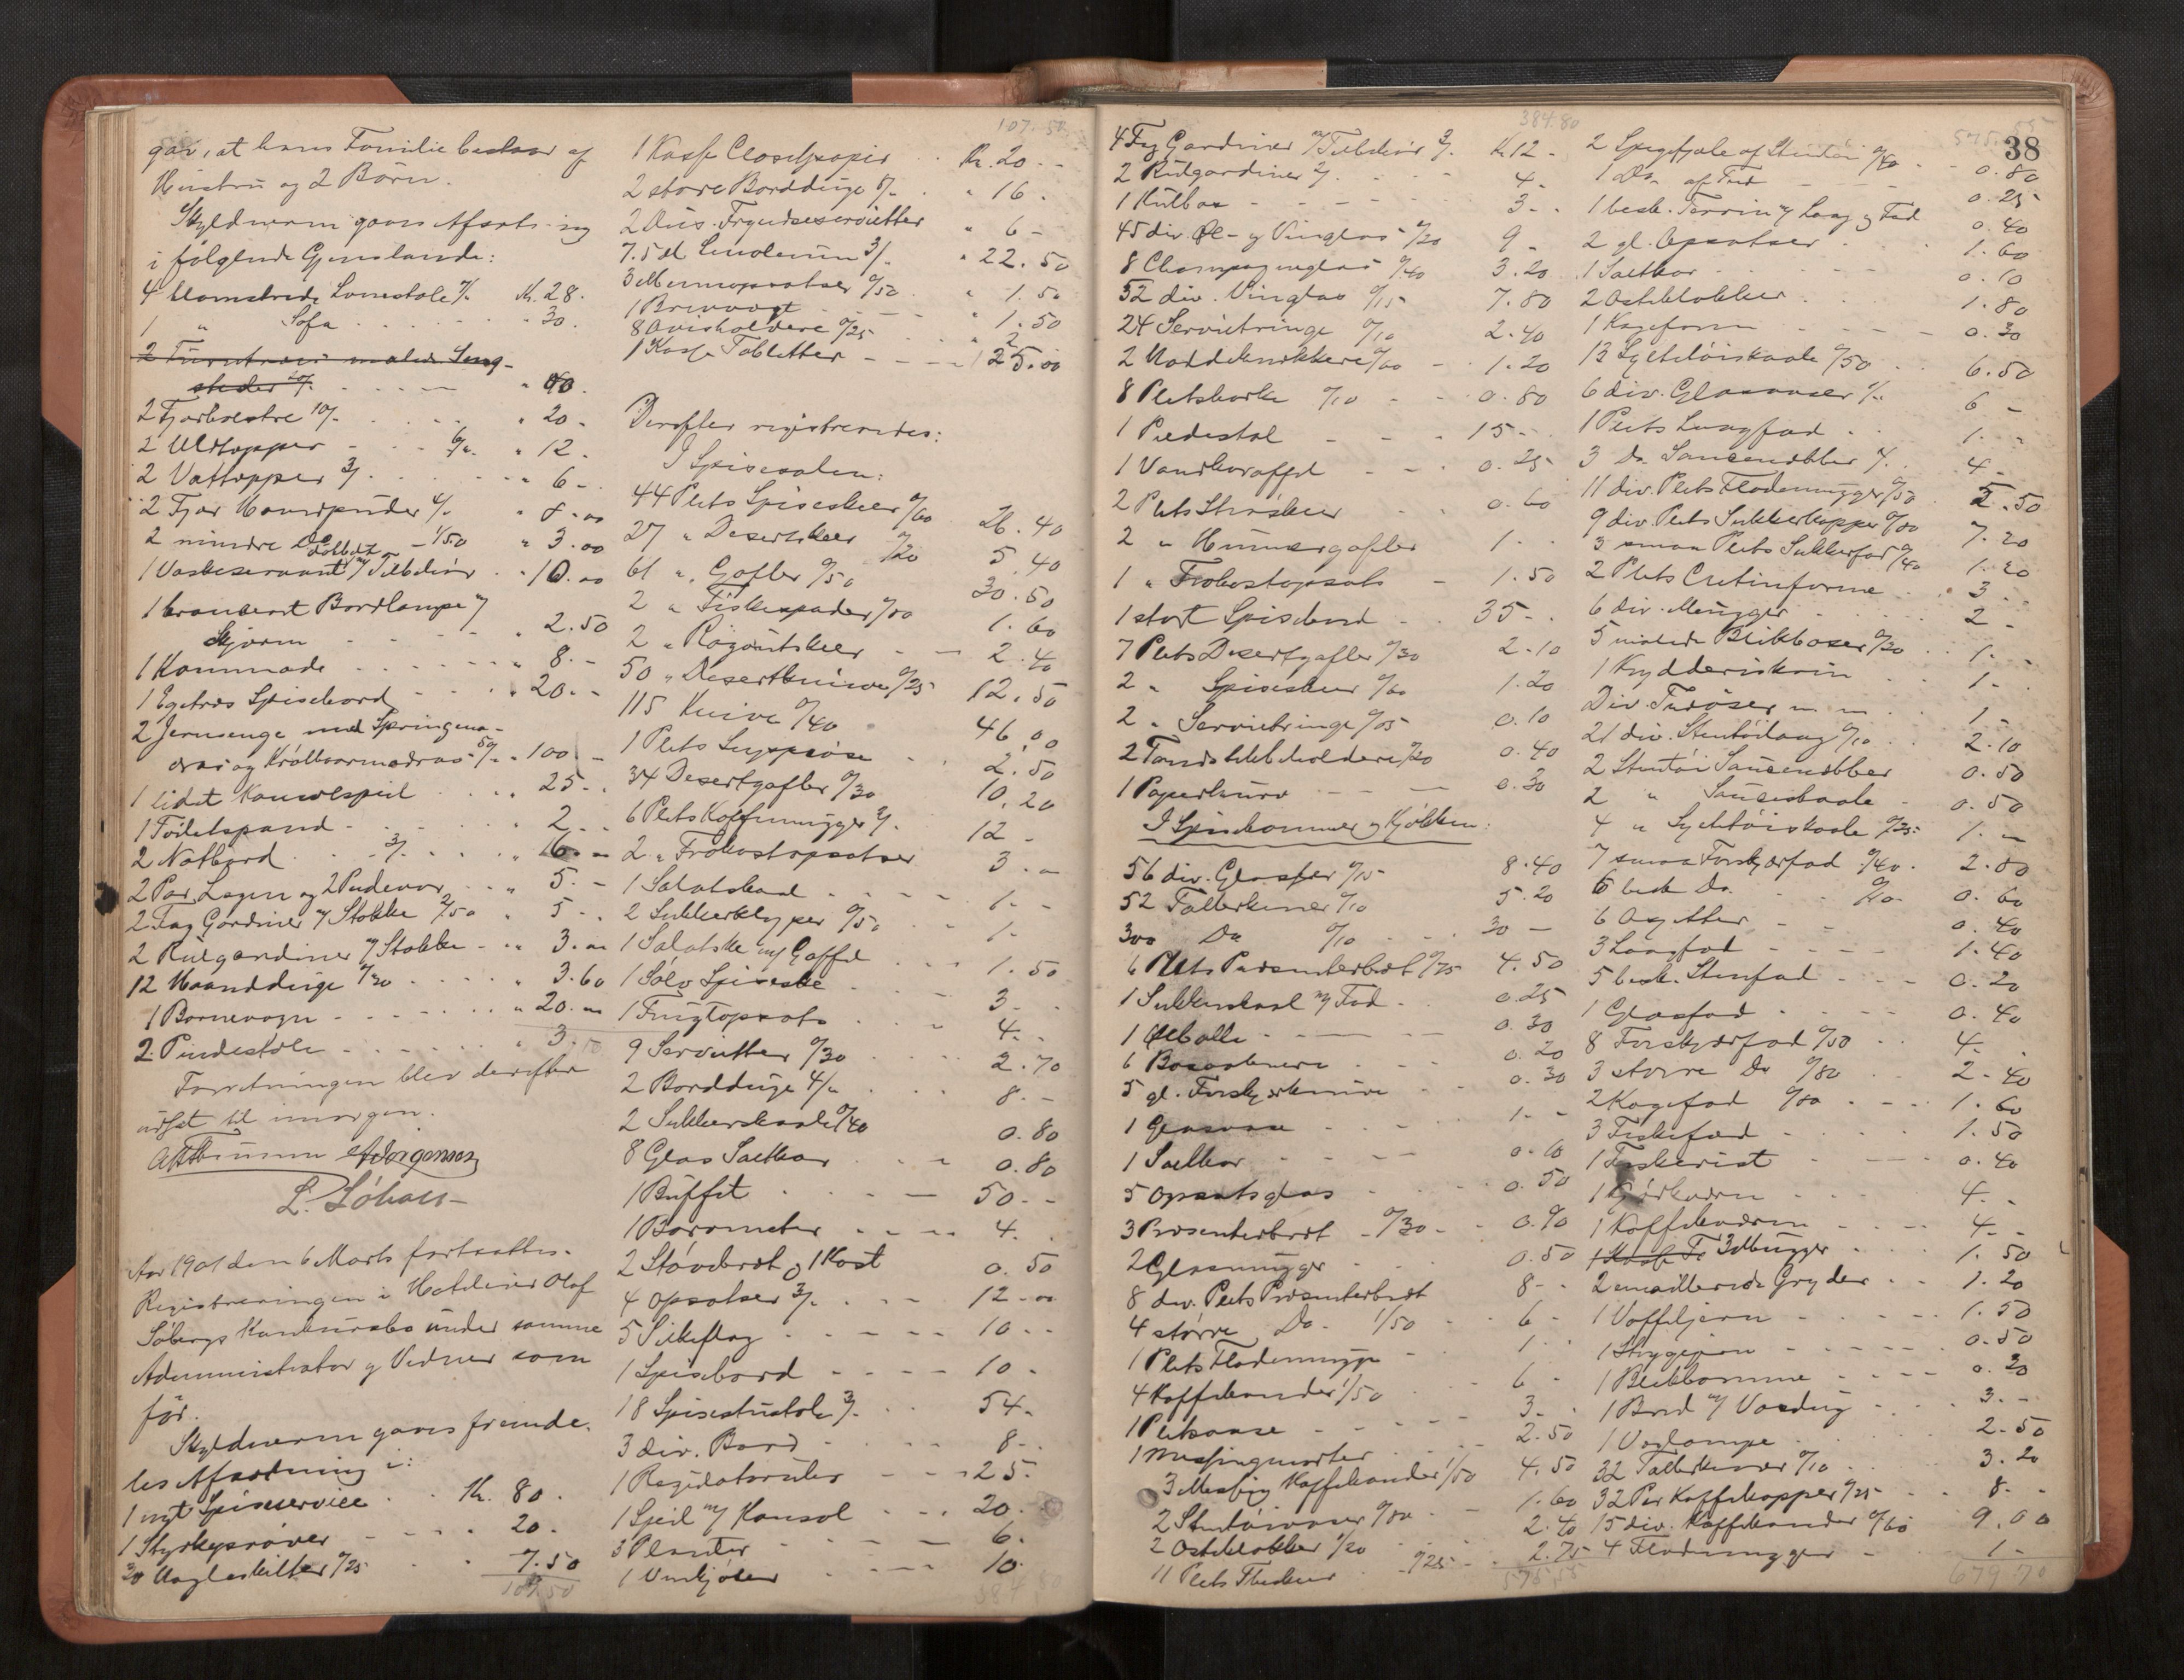 gav, at hans Familie bestaar af
Hustru og 2 Børn.
Skyldneren gaves Afsætning
i følgende Gjenstande:
4 blomstrede Lænestole 7/- Kr. 28.
1 " Sofa " 30.
2 malede Seng-
steder 20/- " 40.
2 Fjærbolstre 10/- " 20 -
2 Uldtæpper 6/- " 12.
2 Vattæpper 3/- " 6 -
2 Fjær Hovedpuder 4/- " 8.00
2 mindre Do - 1/50 " 3.00
1 dobbelt Vaskeservant m/ Tilbehør " 10.00
1 bronceret Bordlampe m/
Skjærm " 2.50
1 Kommode " 8 - -
1 Egetræs Spisebord " 20 - -
2 Jernsenge med Springma-
dras og Krølhaarmadras 50/- " 100 -
1 lidet Konsolspeil " 25 - -
1 Toiletspand " 2 - -
2 Natbord 3/- " 6 - -
2 Par Lagen og 2 Pudevar " 5. -
2 Fag Gardiner m/ Stokke 2/50 " 5 - -
2 Rulgardiner m/ Stokke " 3. -
12 Haandduge 0/30 " 3.60
1 Barnevogn " 20. -
2 Pindestole " 3.
Forretningen blev derefter
udsat til imorgen.
L. Söberg
Aar 1901 den 6 Marts fortsattes
Registreringen i Hoteleier Olaf
Søbergs Konkursbo under samme
Administrator og Vidner som
før.
Skyldneren gaves fremde-
les Afsætning i:
1 nyt Spiseservice Kr. 80.
1 Styrkeprøver 20.
30 Nagleskilter 0/25 7.50
107.50
107.50
1 Kasse Closetpapir Kr. 20 - -
2 store Bordduge 8/- " 16.
2 Dus. Fryndseservietter " 6 -
7.5 M. Linoleum 3/- " 22.50
3 Menuopsatser 0/50 " 1.50
1 Brevvægt " 1.50
8 Avisholdere 0/25 " 2
1 Kasse Tabletter 25.00
Derefter registreredes:
I Spisesalen:
44 Plets Spiseskeer 0/60 26.40
27 " Desertskeer 0/20 5.40
61 " Gafler 0/50 30.50
2 " Fiskespader 0/80 1.60
2 " Ragoutskeer 2.40
50 " Desertknive 0/25 12.50
115 Knive 0/40 46.00
1 Plets Suppeøse 2.50
34 Desertgafler 0/30 10.20
6 Plets Kaffemugger 2/- 12 -
2 " Frokostopsatser 3. -
1 Salatskaal 1. -
2 Sukkerklyper 0/50 1 -
1 Salatske m/ Gaffel 1.50
1 Sølv Spiseske 3 -
1 Frugtopsats 4. -
9 Servietter 0/30 2.70
2 Bordduge 4/- 8. -
2 Sukkerskaale 0/40 0.80
8 Glas Saltkar 0.80
1 Buffet 50 - -
1 Barometer 4.
2 Støvebræt og 1 Kost 0.50
4 Opsatser 3/- 12.00
5 Silkeflag 10 - -
1 Spisebord 10 -
18 Spisestuestole 3/- 54 -
3 div. Bord 8 - -
1 Regulatoruhr 25.
1 Speil m/ Konsol 20.
3 Planter 6.
1 Vinkjøler 10.
384.80
384.80
4 Fag Gardiner m/ Tilbehør 3/- Kr 12 -
2 Rulgardiner 2/- 4 -
1 Kulbox 3 - -
45 div. Øl- og Vinglas 0/20 9 -
8 Champagneglas 0/40 3.20
52 div. Vinglas 0/15 7.80
24 Servietringe 0/10 2.40
2 Nøddeknækkere 0/60 1.20
8 Pletsbørke 0/10 0.80
1 Piedestal 15 -
1 Vandkaraffel 0.25
2 Plets Strøskeer 0.60
2 " Hummergafler 1. -
1 " Frokostopsats 1.50
1 stort Spisebord 35 - -
7 Plets Desertgafler 0/30 2.10
2 " Spiseskeer 0/60 1.20
2 " Servietringe 0/05 0.10
2 Tandstikkholdere 0/20 0.40
1 Papirkurv 0.30
I Spisekammer og Kjøkken:
56 div. Glasser 0/15 8.40
52 Tallerkener 0/10 5.20
300 Do 0/10 30 -
6 Plets Presenterbræt 0/75 4.50
1 Sukkerskaal m/ Fad 0.25
1 Ølbolle 0.30
6 0.20
5 gl. Forskjærknive 0.30
1 Glasvase 1. -
1 Saltkar 0.10
5 Opsatsglas 0.50
3 Presenterbræt 0/30 0.90
2 Glasmugger 0.50
8 div. Plets Presenterbræt 8 - -
4 større Do 1/50 6 -
1 Plets Flødemugge 1 -
4 Kaffekander 1/50 6 -
1 Pletsvase 3 -
1 Messingmorter 2.50
3 Messing Kaffekander 1/50 4.50
2 Stentøivaser 0/80 1.60
2 Osteklokker 1/20 2.40
11 Plets Theskeer 0/25 2.75
575.55
575.55
38
2 Spegefjæle af Stentøi 0/40 0.80
1 Do af Træ 0.25
1 besk. Terrin m/ Laag og Fad 0.40
2 gl. Opsatser 1.60
1 Saltkar 0.10
2 Osteklokker 1.80
1 Kageform 0.30
13 Syltetøiskaale 0/50 6.50
6 div. Glasvaser 1/- 6 -
1 Plets Laagfad 1. -
3 Do. Saucenebber 4 -
11 div. Plets Flødemugger 0/50 5.50
9 div. Plets Sukkerkopper 0/80 7.20
3 smaa Plets Sukkerfad 0/40 1.20
2 Plets Cretinforme 3. -
6 div. Mugger 2 -
5 malede Blikbokser 0/20 1. -
1 Krydderiskrin 1 -
Div. Træøser m. m. 1 -
21 div. Stentøilaag 0/10 2.10
2 Stentøi Saucenebber 0.50
2 " Sauceskaale 0.50
4 " Syltetøiskaale 0/25 1. -
7 smaa Forskjærfad 0/40 2.80
6 besk. Do. 0/10 0.60
6 Asjetter 0.40
3 Laagfad 1.40
5 besk. Stenfad 0.20
1 Glasfad 0.40
8 Forskjærfad 0/50 4.
3 større Do 0/80 2.40
2 Kagefad 0/80 1.60
3 Fiskefad 1.50
1 Fiskerist 0.40
1 Kjødkværn 4. -
1 Kaffekværn 4 - -
3 Ølmugger 1.50
2 emaillerede Gryder 1.20
1 Vaffeljern 1.50
1 Strygejern 0.50
1 Blikkomme 0.20
1 Bord m/ Voxdug 3. -
1 Voxlampe 2.50
32 Tallerkener 0/10 3.20
32 Par Kaffekopper 0/25 8. -
15 div. Kaffekander 0/60 9.00
4 Flødemugger 1 -
679.70